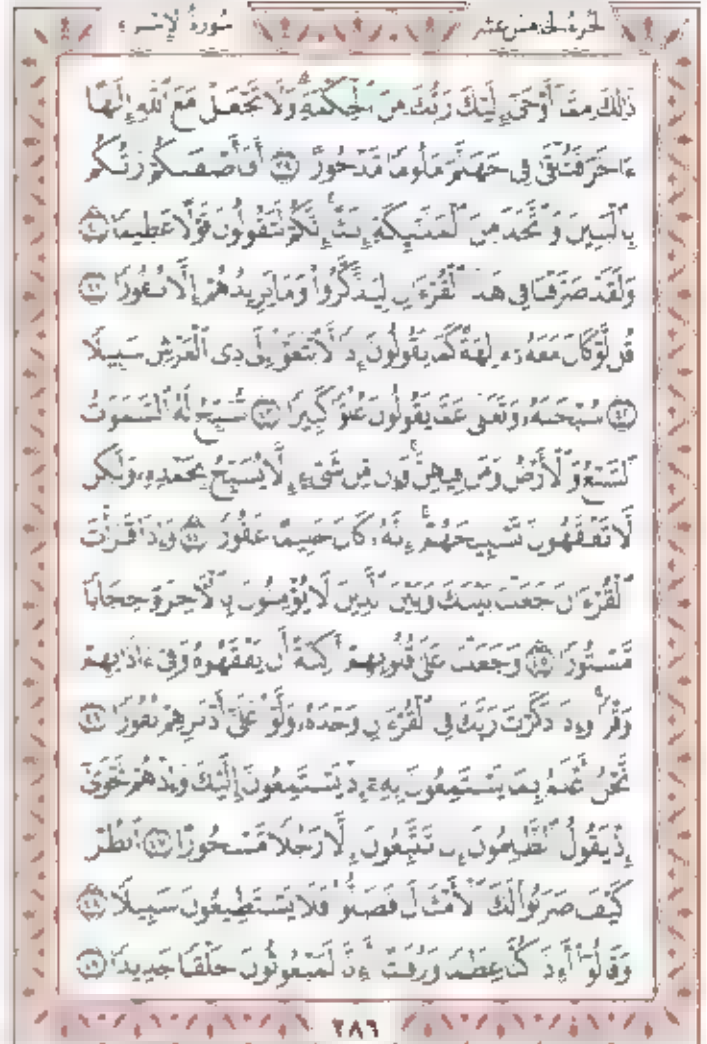 سُورَةُ الإِسْرَاءِ الجُزءُ الخَامِسَ عَشَرَ
ذَٰلِكَ مِمَّآ أَوْحَىٰٓ إِلَيْكَ رَبُّكَ مِنَ ٱلْحِكْمَةِ ۗ وَلَا تَجْعَلْ مَعَ ٱللَّهِ إِلَٰهًا
ءَاخَرَ فَتُلْقَىٰ فِى جَهَنَّمَ مَلُومًا مَّدْحُورًا ۝٣٩ أَفَأَصْفَىٰكُمْ رَبُّكُم
بِٱلْبَنِينَ وَٱتَّخَذَ مِنَ ٱلْمَلَٰٓئِكَةِ إِنَٰثًا ۚ إِنَّكُمْ لَتَقُولُونَ قَوْلًا عَظِيمًا ۝٤٠
وَلَقَدْ صَرَّفْنَا فِى هَٰذَا ٱلْقُرْءَانِ لِيَذَّكَّرُوا۟ وَمَا يَزِيدُهُمْ إِلَّا نُفُورًا ۝٤١
قُل لَّوْ كَانَ مَعَهُۥٓ ءَالِهَةٌ كَمَا يَقُولُونَ إِذًا لَّٱبْتَغَوْا۟ إِلَىٰ ذِى ٱلْعَرْشِ سَبِيلًا
۝٤٢ سُبْحَٰنَهُۥ وَتَعَٰلَىٰ عَمَّا يَقُولُونَ عُلُوًّا كَبِيرًا ۝٤٣ تُسَبِّحُ لَهُ ٱلسَّمَٰوَٰتُ
ٱلسَّبْعُ وَٱلْأَرْضُ وَمَن فِيهِنَّ ۚ وَإِن مِّن شَىْءٍ إِلَّا يُسَبِّحُ بِحَمْدِهِۦ وَلَٰكِن
لَّا تَفْقَهُونَ تَسْبِيحَهُمْ ۗ إِنَّهُۥ كَانَ حَلِيمًا غَفُورًا ۝٤٤ وَإِذَا قَرَأْتَ
ٱلْقُرْءَانَ جَعَلْنَا بَيْنَكَ وَبَيْنَ ٱلَّذِينَ لَا يُؤْمِنُونَ بِٱلْءَاخِرَةِ حِجَابًا
مَّسْتُورًا ۝٤٥ وَجَعَلْنَا عَلَىٰ قُلُوبِهِمْ أَكِنَّةً أَن يَفْقَهُوهُ وَفِىٓ ءَاذَانِهِمْ
وَقْرًا ۚ وَإِذَا ذَكَرْتَ رَبَّكَ فِى ٱلْقُرْءَانِ وَحْدَهُۥ وَلَّوْا۟ عَلَىٰٓ أَدْبَٰرِهِمْ نُفُورًا ۝٤٦
نَّحْنُ أَعْلَمُ بِمَا يَسْتَمِعُونَ بِهِۦٓ إِذْ يَسْتَمِعُونَ إِلَيْكَ وَإِذْ هُمْ نَجْوَىٰٓ
إِذْ يَقُولُ ٱلظَّٰلِمُونَ إِن تَتَّبِعُونَ إِلَّا رَجُلًا مَّسْحُورًا ۝٤٧ ٱنظُرْ
كَيْفَ ضَرَبُوا۟ لَكَ ٱلْأَمْثَالَ فَضَلُّوا۟ فَلَا يَسْتَطِيعُونَ سَبِيلًا ۝٤٨
وَقَالُوٓا۟ أَءِذَا كُنَّا عِظَٰمًا وَرُفَٰتًا أَءِنَّا لَمَبْعُوثُونَ خَلْقًا جَدِيدًا ۝٤٩
٢٨٦